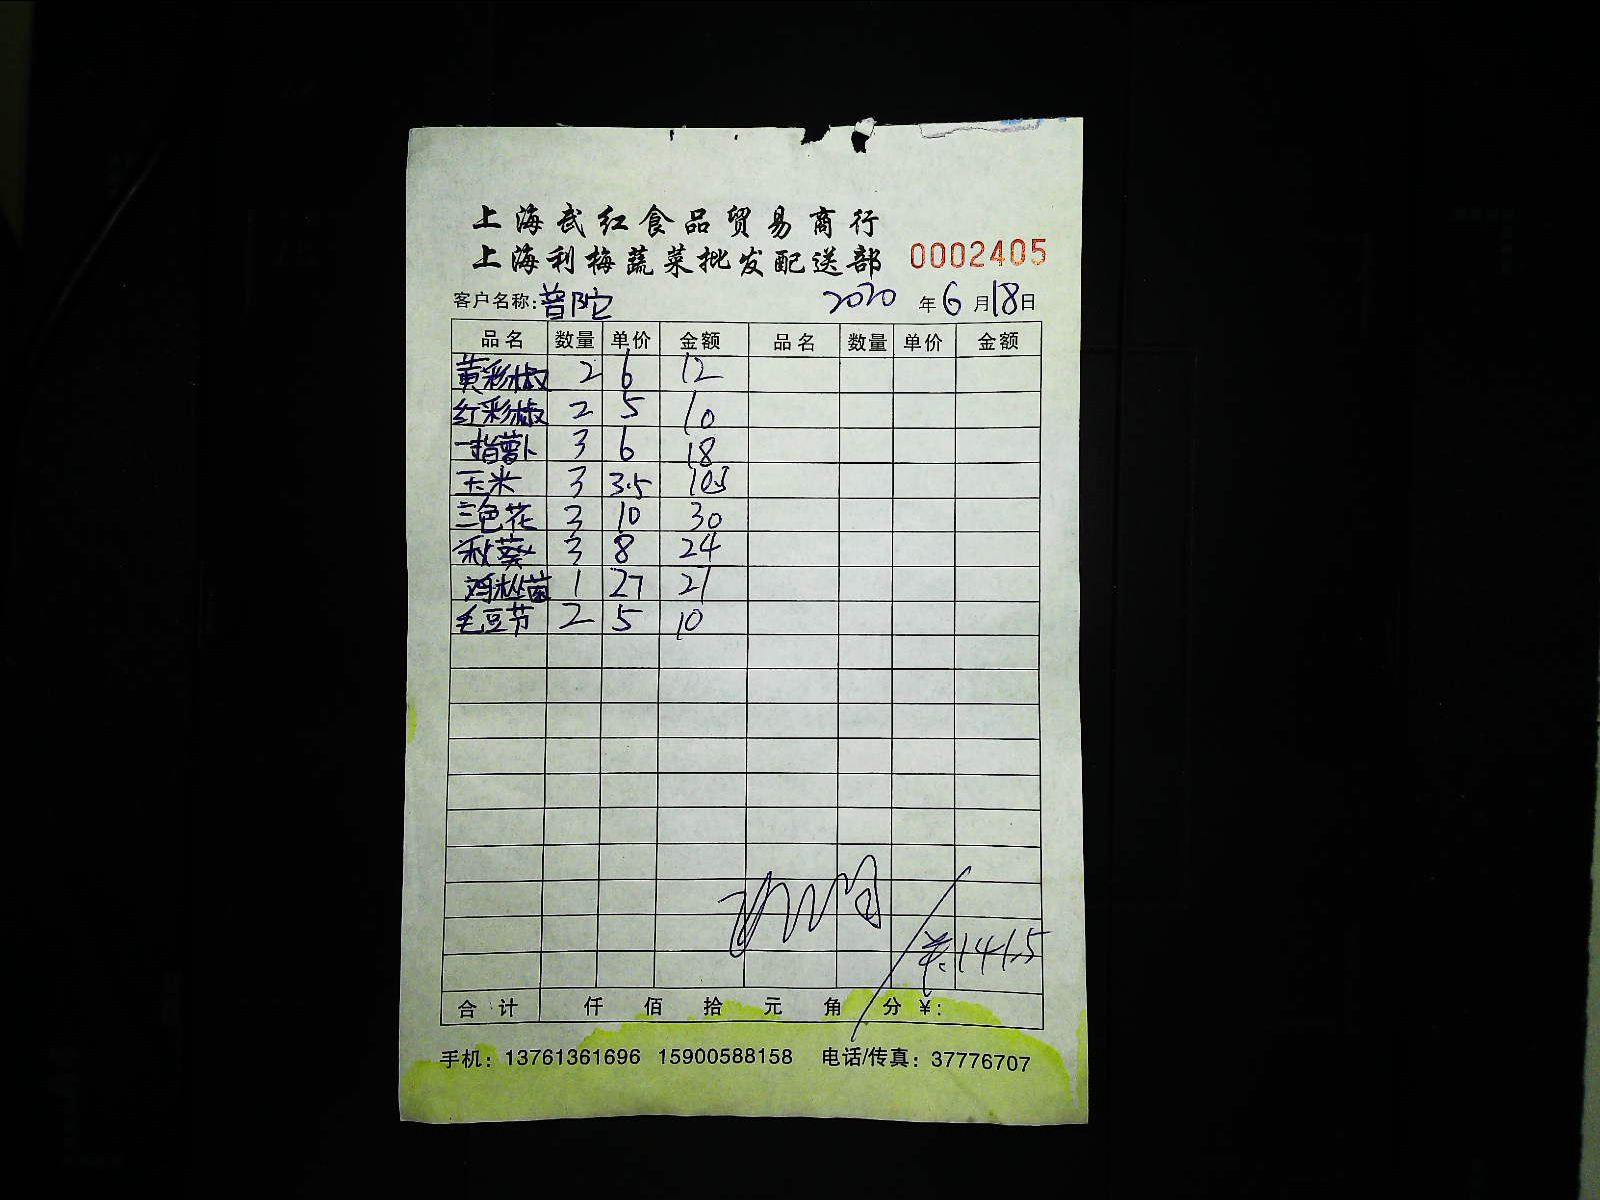 上海武红食品贸易商行
上海利梅蔬菜批发配送部 0002405
客户名称:普陀 2020年6月18日
品名 数量 单价 金额 品名 数量 单价 金额
黄彩椒 2 6 12
红彩椒 2 5 10
一指萝卜 3 6 18
玉米 3 3.5 10.5
三色花 3 10 30
秋葵 3 8 24
鸡枞菌 1 27 27
毛豆节 2 5 10
共:141.5
合计 仟 佰 拾 元 角 分 ¥:
手机:13761361696 15900588158 电话/传真:37776707